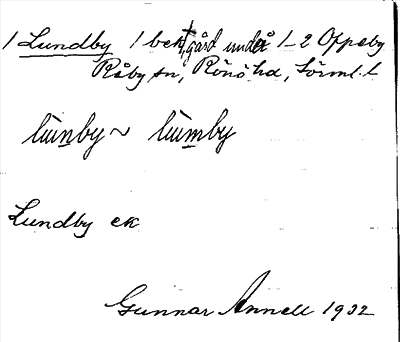 1 Lundby 1 bek, gård under 1-2 Oppeby
Råby sn, Rönö hd, Sörml. l
lùnby ~ lùmby
Lundby ek
Gunnar Annell 1932